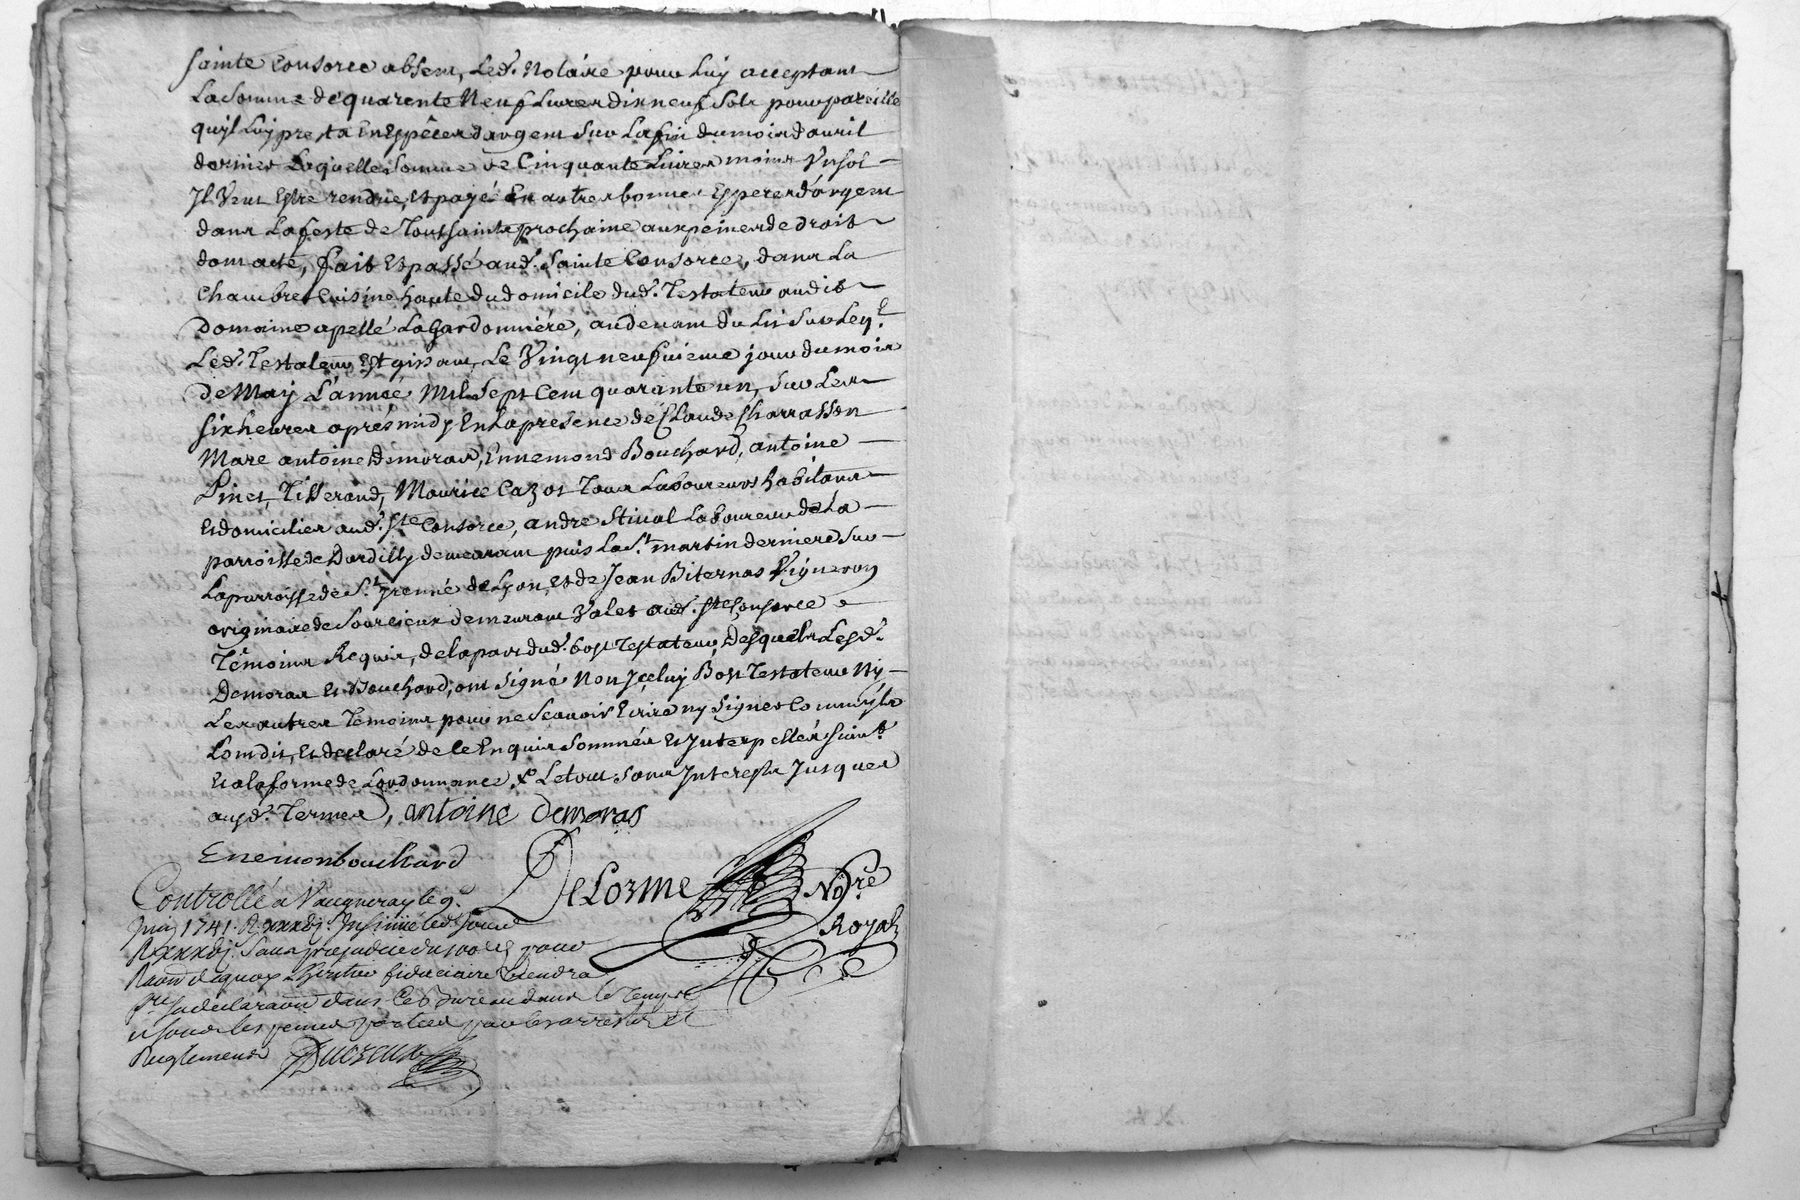 Sainte Consorce absent, Led. Notaire pour Luy acceptant
La Somme de quarente Neuf Livres dix neuf Sols pour pareille
quil Luy presta En Especes d'argent Sur La fin du mois d'avril
dernier Laquelle Somme de Cinquante Livres moins Un Sol
Il Veut Estre rendue, et payé En autres bonnes Especes d'argent
dans La feste de Toussaints prochaine aux peines de droit
dont acte, fait Et passé aud. Sainte Consorce, dans La
Chambre Cuisine haute du domicile dud. Testateur audit
Domaine apellé La Gardonniére, au devant du Lit Sur Leql.
Led. Testateur Est gissant, Le Vingt neufuieme jour du mois
De May L'année Mil Sept Cent quarante un, Sur Les
Six heures aprés midy En La présence de Claude Charrasson
Marc antoine Demoras, Ennemond Bouchard, antoine
Pinet, Tisserand, Maurice Cazot Tous Laboureurs habitans
Et domiciliés aud. Ste Consorce, andre Stival Laboureur de La
parroisse de Dardilly demeurant puis La St. martin derniere Sur
La parroisse de St. Irenné de Lyon, Et de Jean Biternas Vigneron
originaire de Sourcieux demeurant Valet aud. Ste Consorce
Témoins Requis, de la part dud. Bost Testateur, Desquels Lesd.
Demoras Et Bouchard, ont Signé Non Iceluy Bost Testateur Ny
Les autres Témoins pour ne Scavoir Ecrire ny Signer Comm'ils
L'ont dit, Et declaré de ce Enquis Sommés Et Interpellés Suivt.
Et a la forme de L'ordonnance. & Le tout Sans Interests Jusques
auxd. Termes, antoine Demoras
Enemonbouchard
DeLorme Nore.
Royal
Controllé a Vaugneray le 9e.
Juin 1741. R xxxvj s. Insinué led. Jour
R xxxvj s. Sans préjudice du 100e d. pour
Raon dequoy L'heritier fiduciaire viendra
fre Sa declaraon dans Ce Bureau dans le temps
et Sous les peines portées par les arrests et
Reglements Ducreux